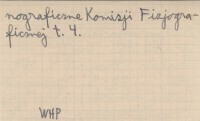 nograficzne Komisji Fizjogra-
ficznej t. 4.
WHP